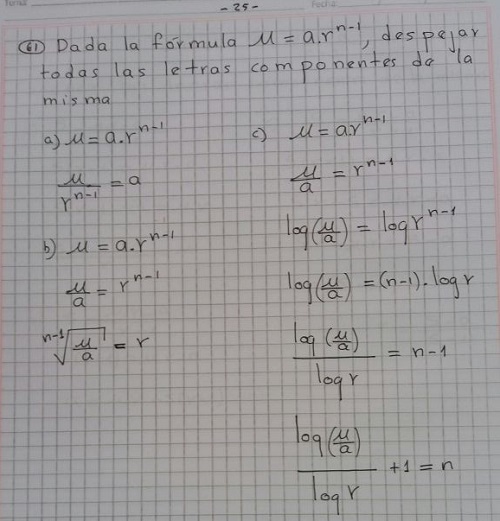 - 25 -
61) Dada la fórmula μ = a.r^(n-1), despejar
todas las letras componentes de la
misma
a) μ = a.r^(n-1)
μ/r^(n-1) = a
b) μ = a.r^(n-1)
μ/a = r^(n-1)
ⁿ⁻¹√(μ/a) = r
c) μ = a.r^(n-1)
μ/a = r^(n-1)
log(μ/a) = log r^(n-1)
log(μ/a) = (n-1).log r
log(μ/a)/log r = n-1
log(μ/a)/log r +1 = n